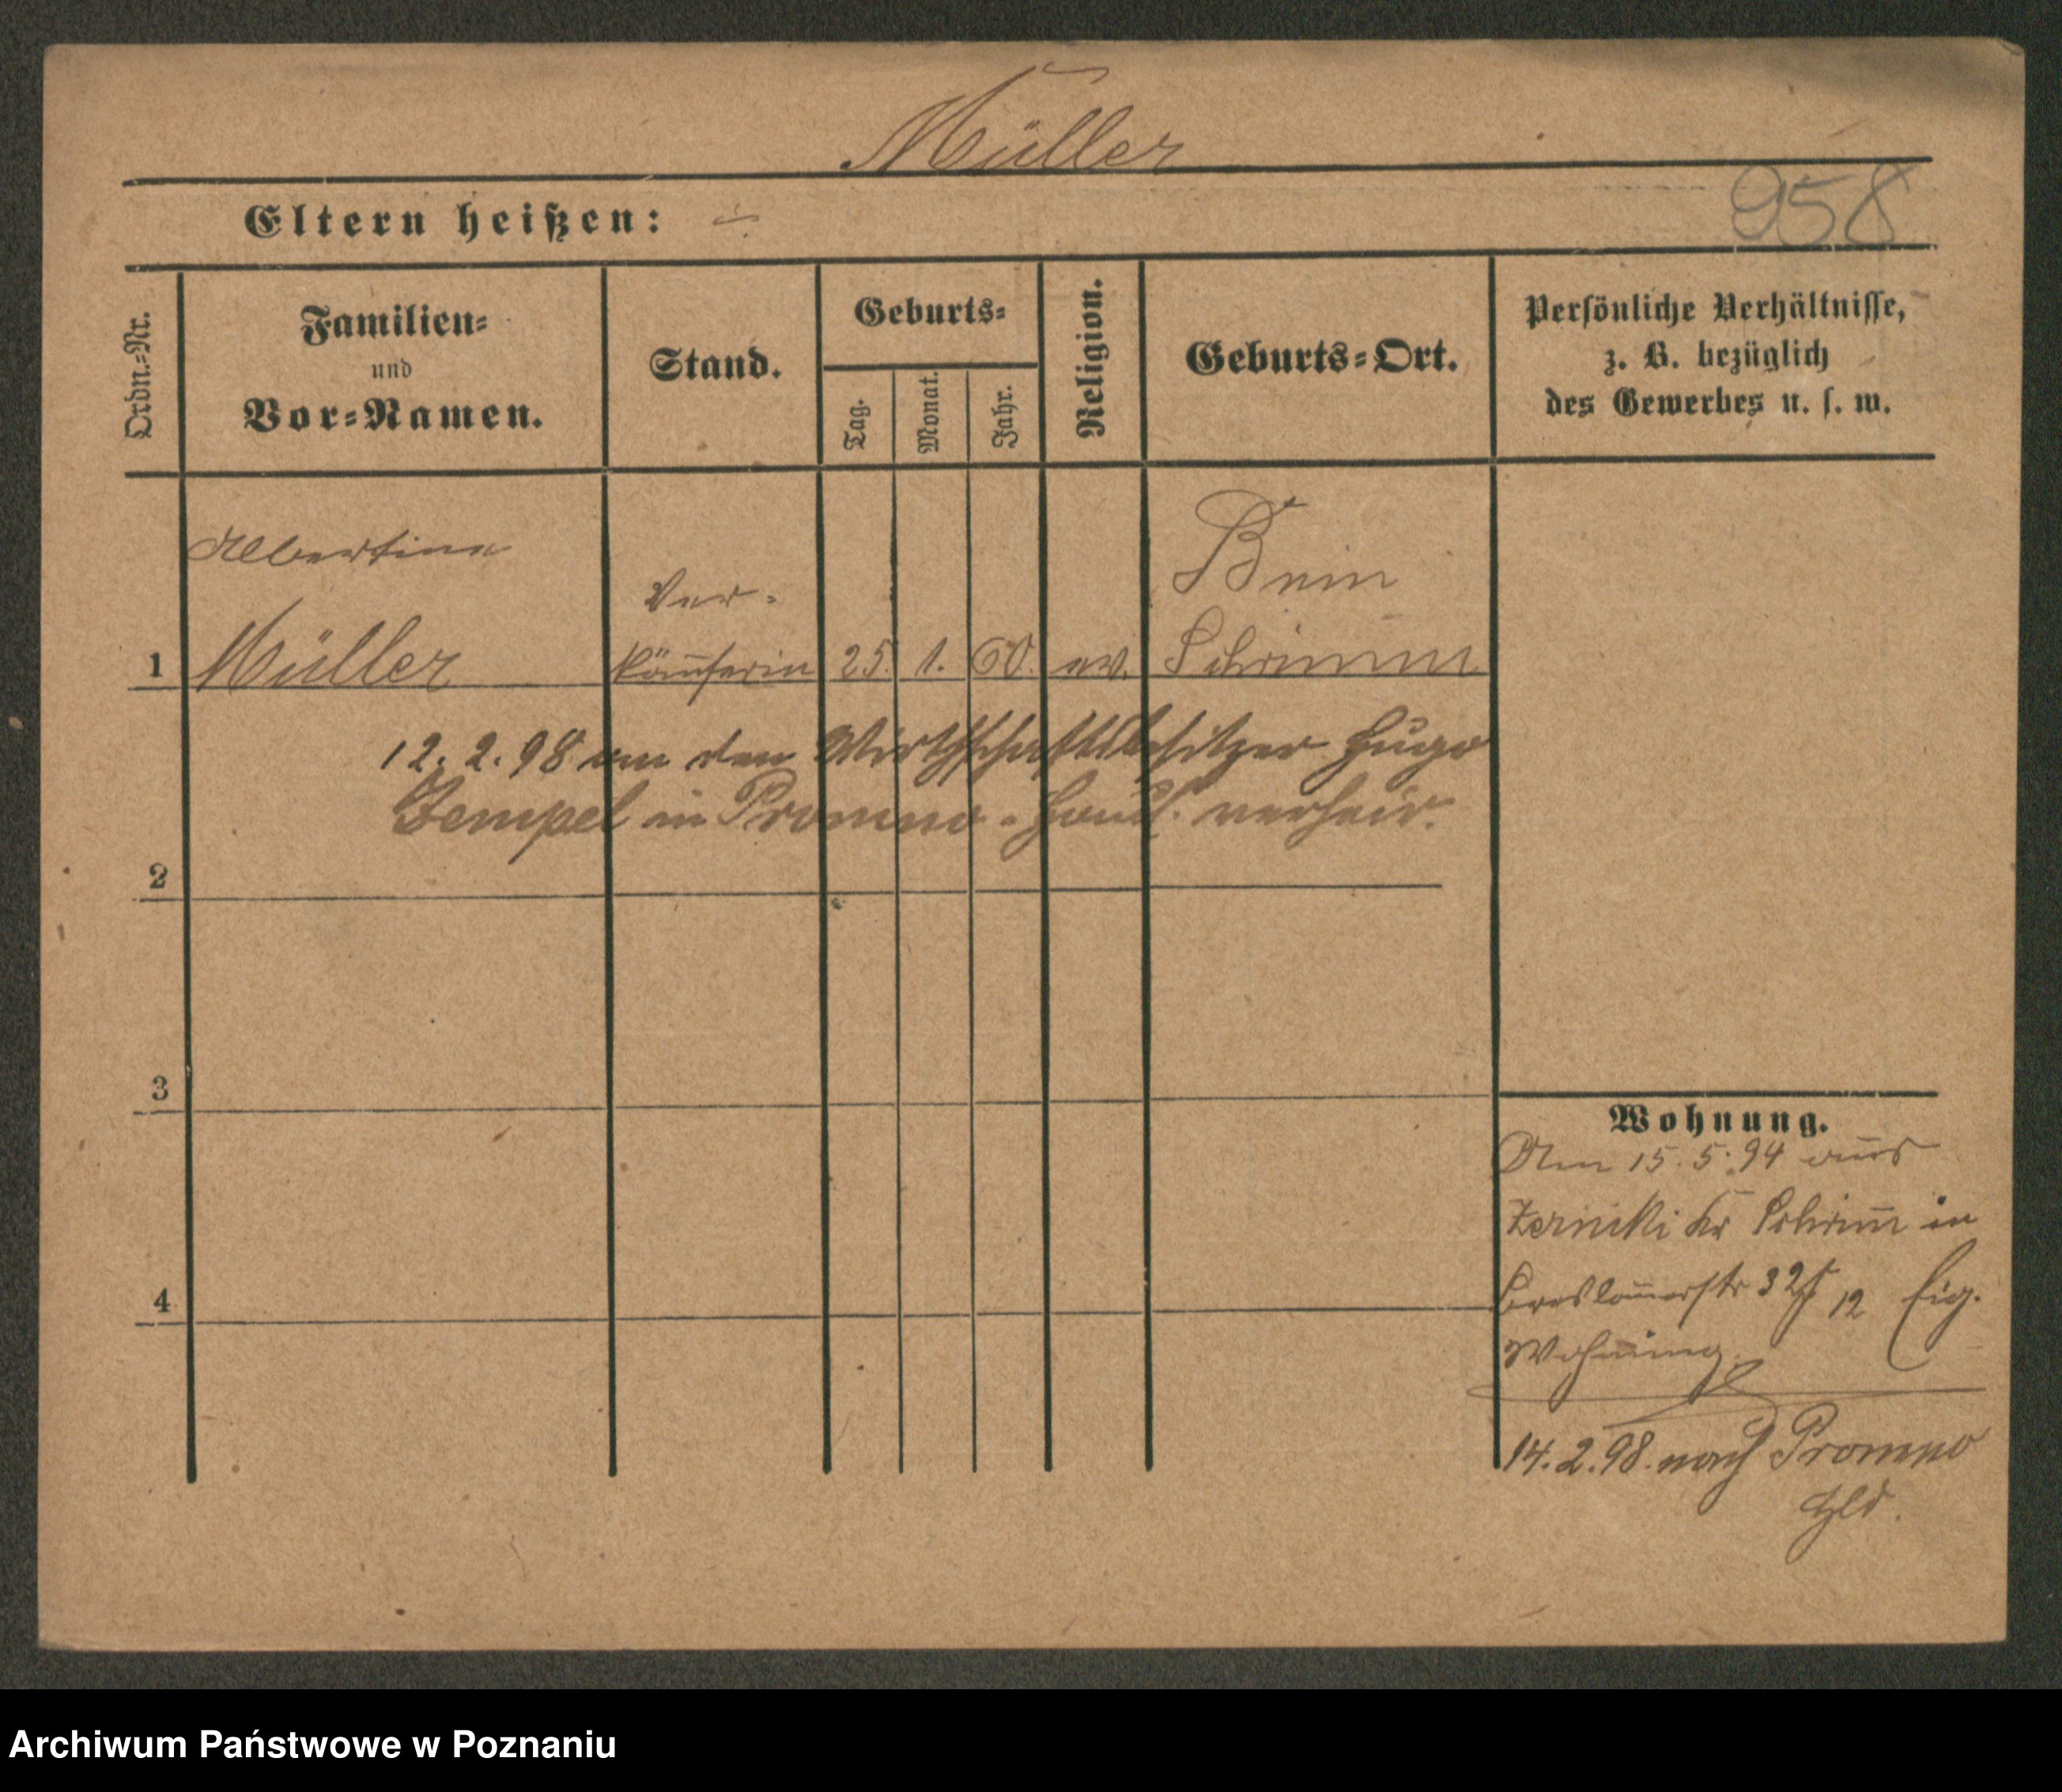 Müller
958
Eltern heißen: ÷
Ordn.=Nr.
Familien=
und
Vor=Namen.
Stand.
Geburts=
Tag.
Monat.
Jahr.
Religion.
Geburts=Ort.
Persönliche Verhältnisse,
z. B. bezüglich
des Gewerbes u. s. w.
Albertine
Bnin
Ver-
1 Müller käuferin 25. 1. 60. ev. Schrimm
12. 2. 98 an den Wirthschaftsbesitzer Hugo
Tempel in Promno - Haul. verheir.
2
3
4
Wohnung.
Am 15. 5. 94 aus
Zerniki Kr Schrim̄ in
Breslauerstr 32 12 Eig.
Wohnung
14. 2. 98. nach Promno
Hld.
Archiwum Państwowe w Poznaniu